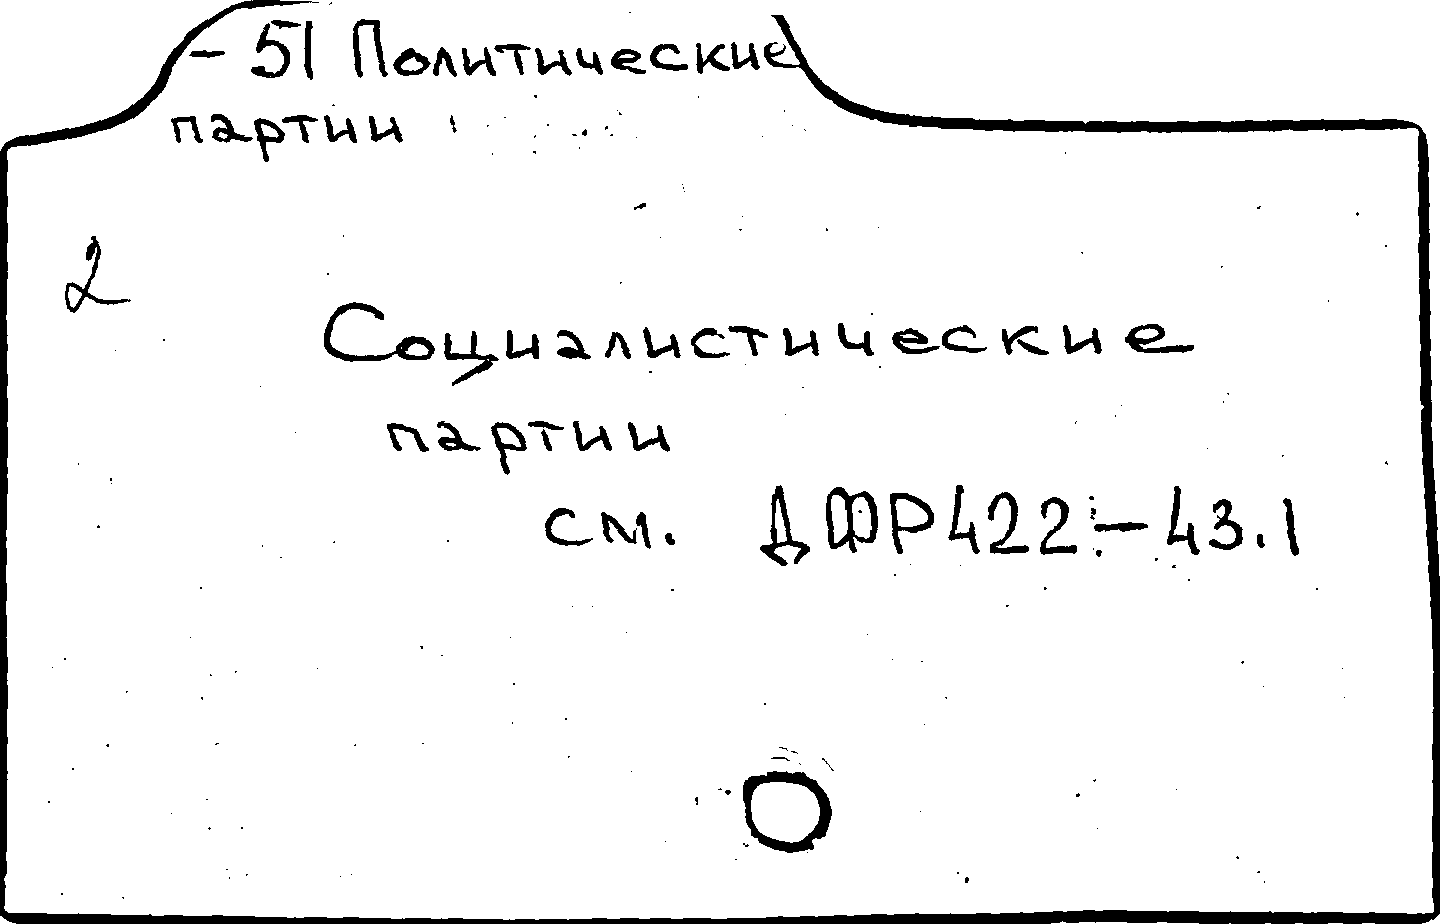 - 51 Политические
партии
2
Социалистические
партии
см. ДФР422-43.1